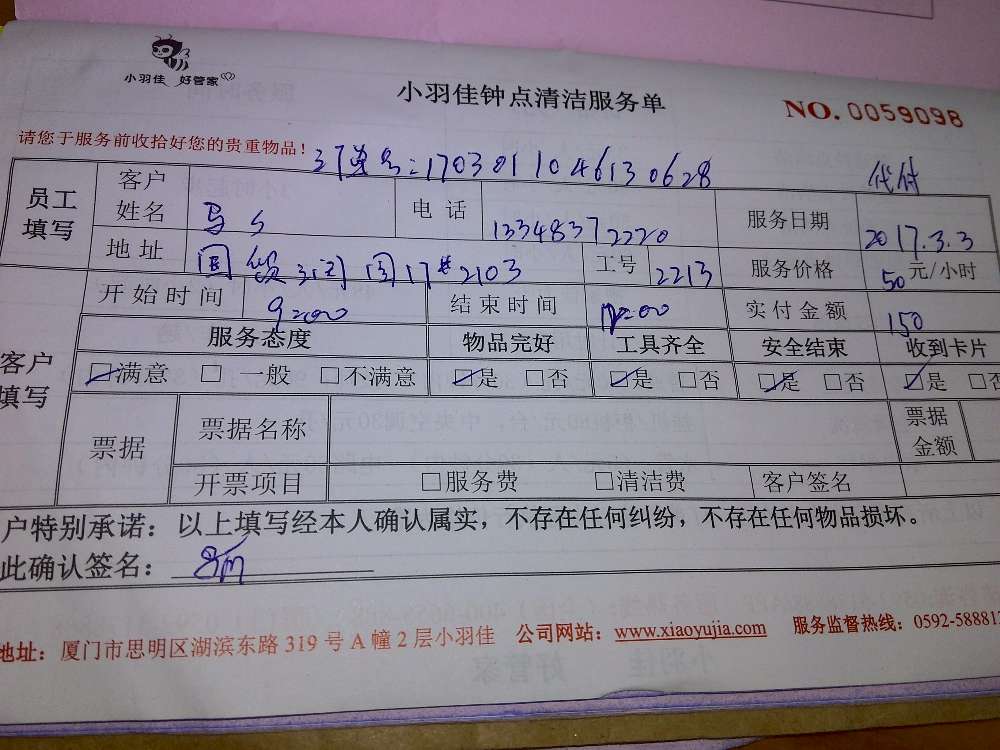 小羽佳 好管家
小羽佳钟点清洁服务单
NO. 0059098
请您于服务前收拾好您的贵重物品!
订单号:1703011046130628 代付
员工填写
客户姓名 马 电话 13348372220 服务日期 2017.3.3
地址 国贸 17#2103 工号 2213 服务价格 50元/小时
客户填写
开始时间 9:00 结束时间 12:00 实付金额 150
服务态度 物品完好 工具齐全 安全结束 收到卡片
☑满意 □一般 □不满意 ☑是 □否 ☑是 □否 ☑是 □否 ☑是 □否
票据 票据名称 票据金额
开票项目 □服务费 □清洁费 客户签名
户特别承诺:以上填写经本人确认属实,不存在任何纠纷,不存在任何物品损坏。
此确认签名:
地址:厦门市思明区湖滨东路 319 号 A 幢 2 层小羽佳 公司网站:www.xiaoyujia.com 服务监督热线:0592-588812